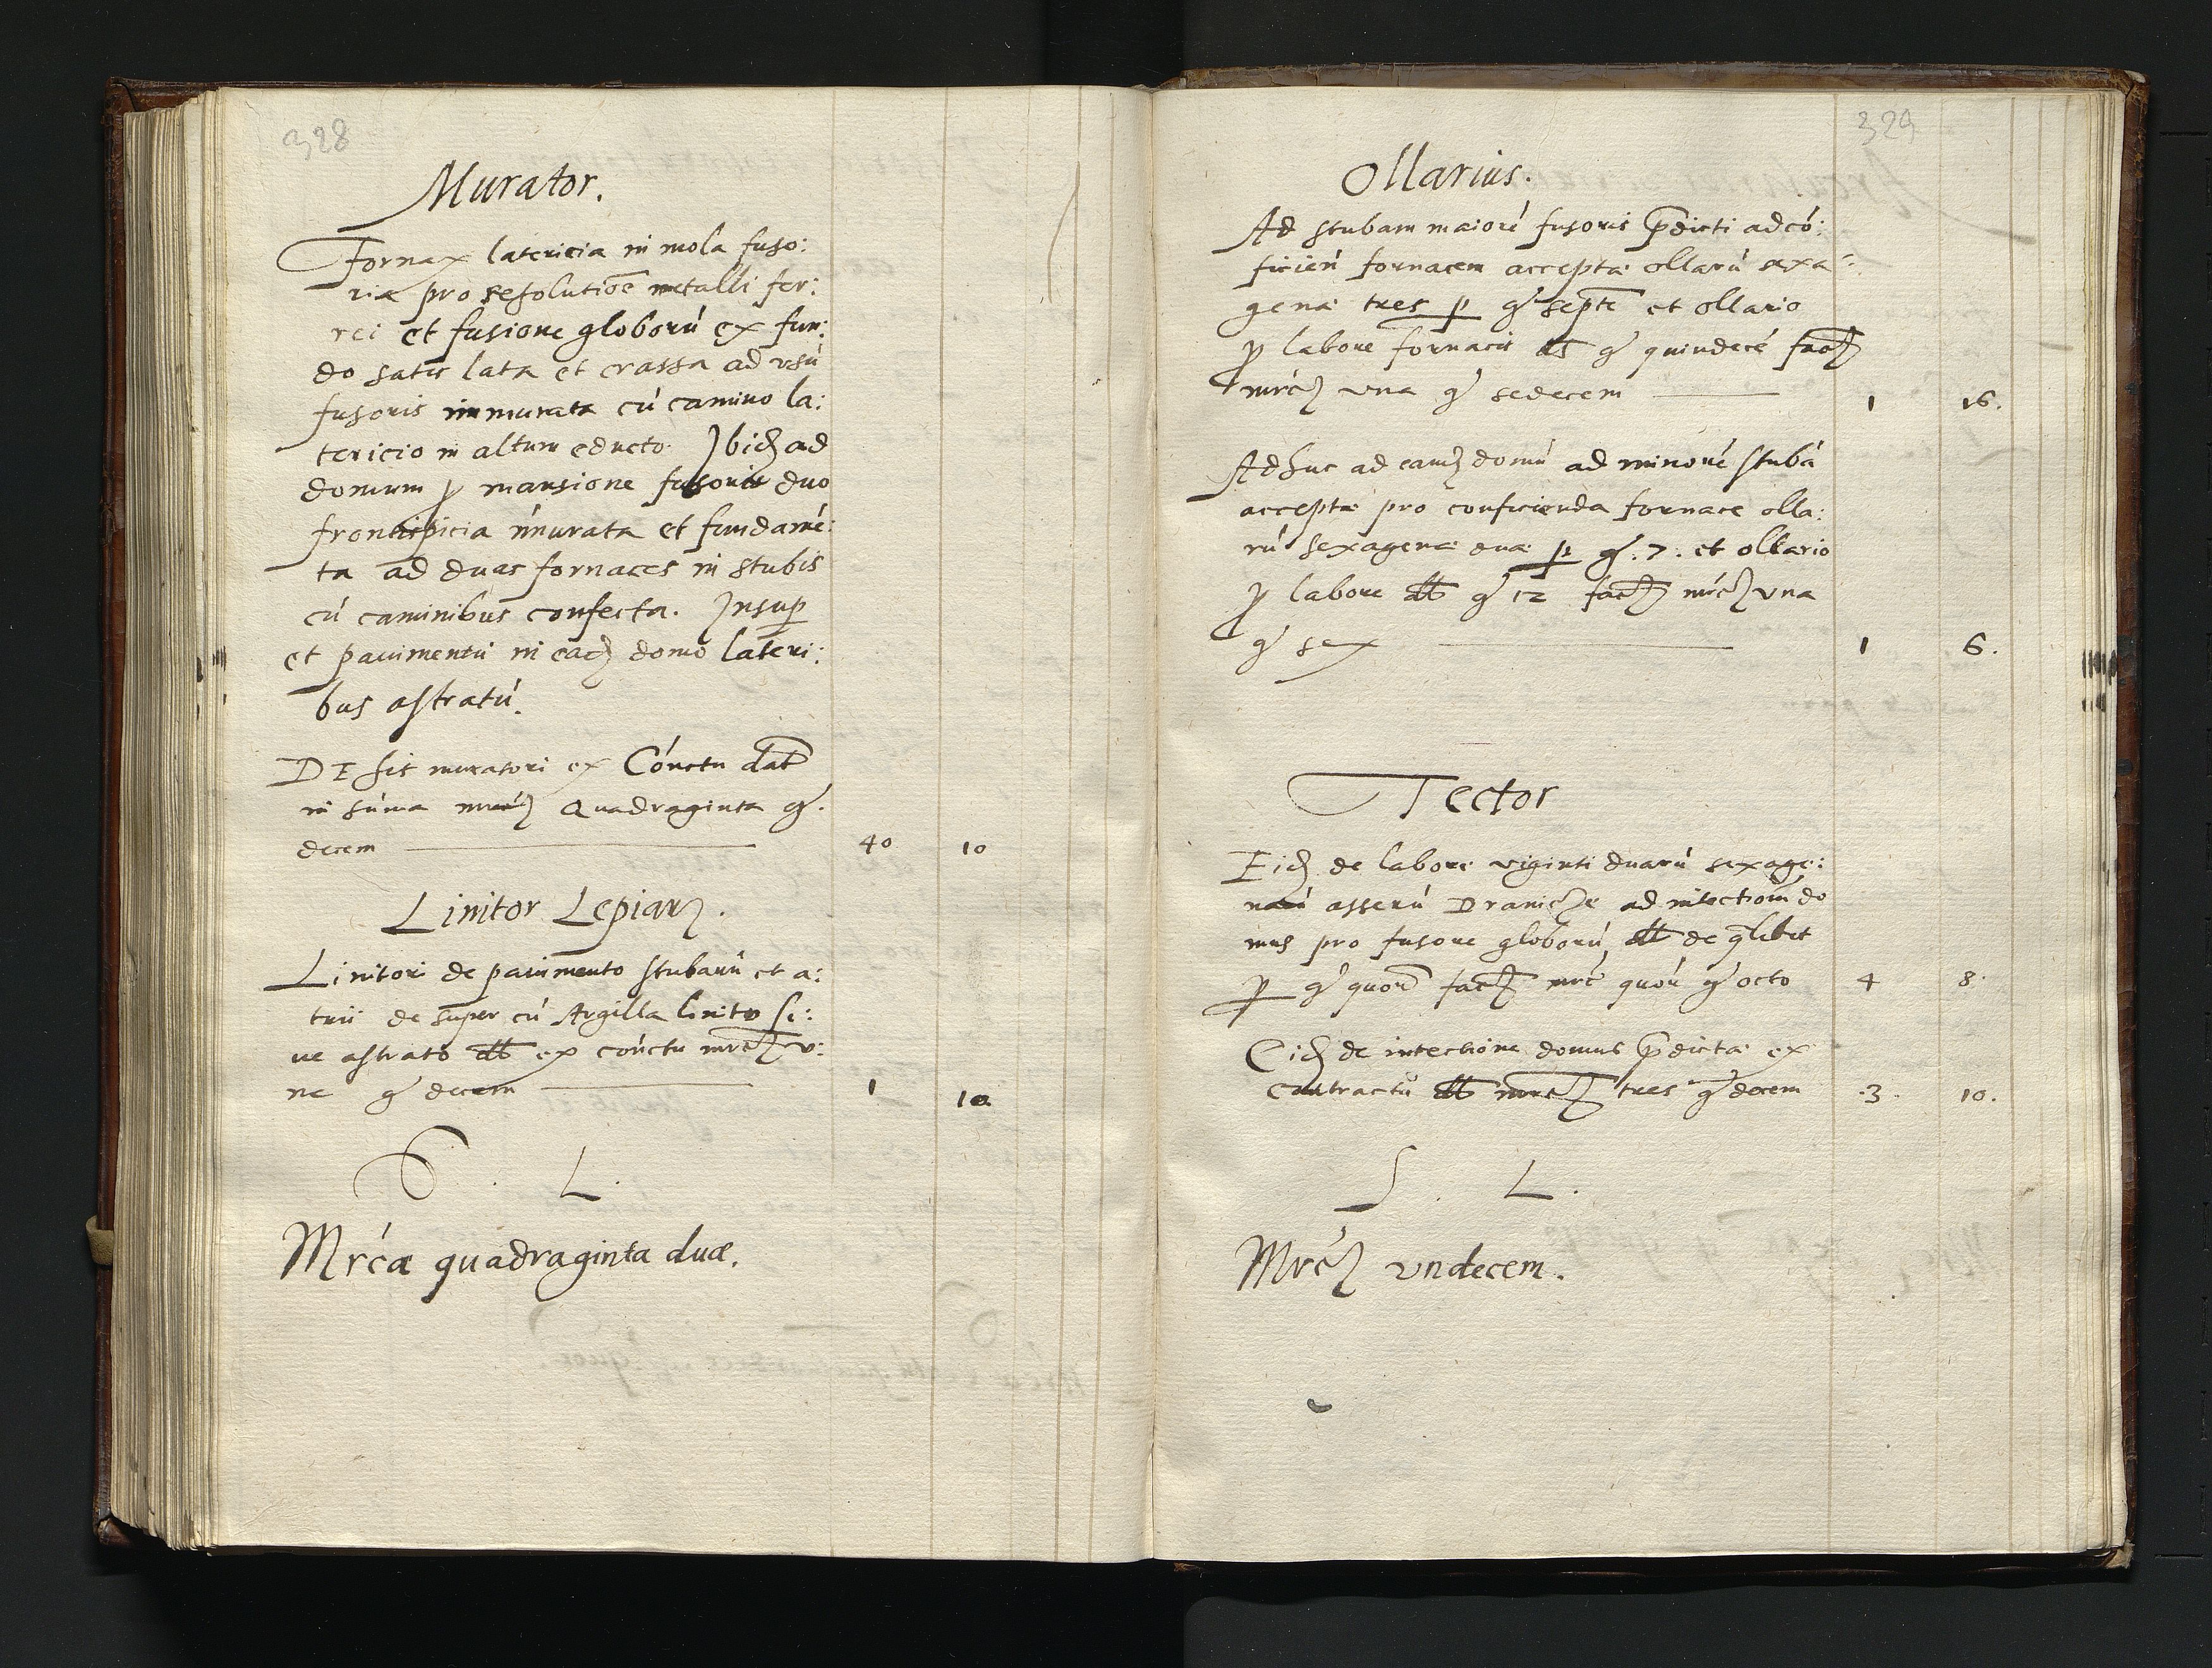 328
Murator.
Fornax latericia in mola fuso:
riæ pro resolutiōe metalli fer:
rei et fusione gloború ex fun:
do satis lata et crassa ad vsú
fusoris immurata cú camino la:
tericio in altum educto. Ibid ad
domum p mansione fusoris duo
frontispicia ímurata et fundamé:
ta ad duas fornaces in stubis
cú caminibus confecta. Insup
et pauimentú in eadē domo lateri:
bus astratú.
DE his muratori ex Cónctu dat
in súma mrcas Quadraginta g.
decem 40 10
Linitor Lepiarz.
Linitori de pauimento stubarú et a:
trii de super cú Argilla linito si:
ue astrato dt ex cónctu mrcā v:
na g decem 1 10
S. L.
Mrcæ quadraginta duæ.
329
Ollarius.
Ad stubam maioré fusoris pdicti ad có:
ficień fornacem acceptæ ollarú sexa:
genæ tres p g septē et ollario
p labore fornacis dt g quindecé facit
mrcā vna g sedecem 1 16.
Adhuc ad eand domú ad minoré stubá
acceptæ pro conficienda fornace olla:
rú sexagenæ duæ p g. 7. et ollario
p labore dt g 12 facit mrcā vna
g sex 1 6.
Tector
Eid de labore viginti duarú sexage:
narú asserú Dranicze ad intectionem do
mus pro fusore gloború dt de qlibet
p g quor facit mrc quór g octo 4 8.
Eid de intectione domus pdictæ ex
contractu dt mrcas tres g decem .3. 10.
S. L.
Mrcæ vndecem.